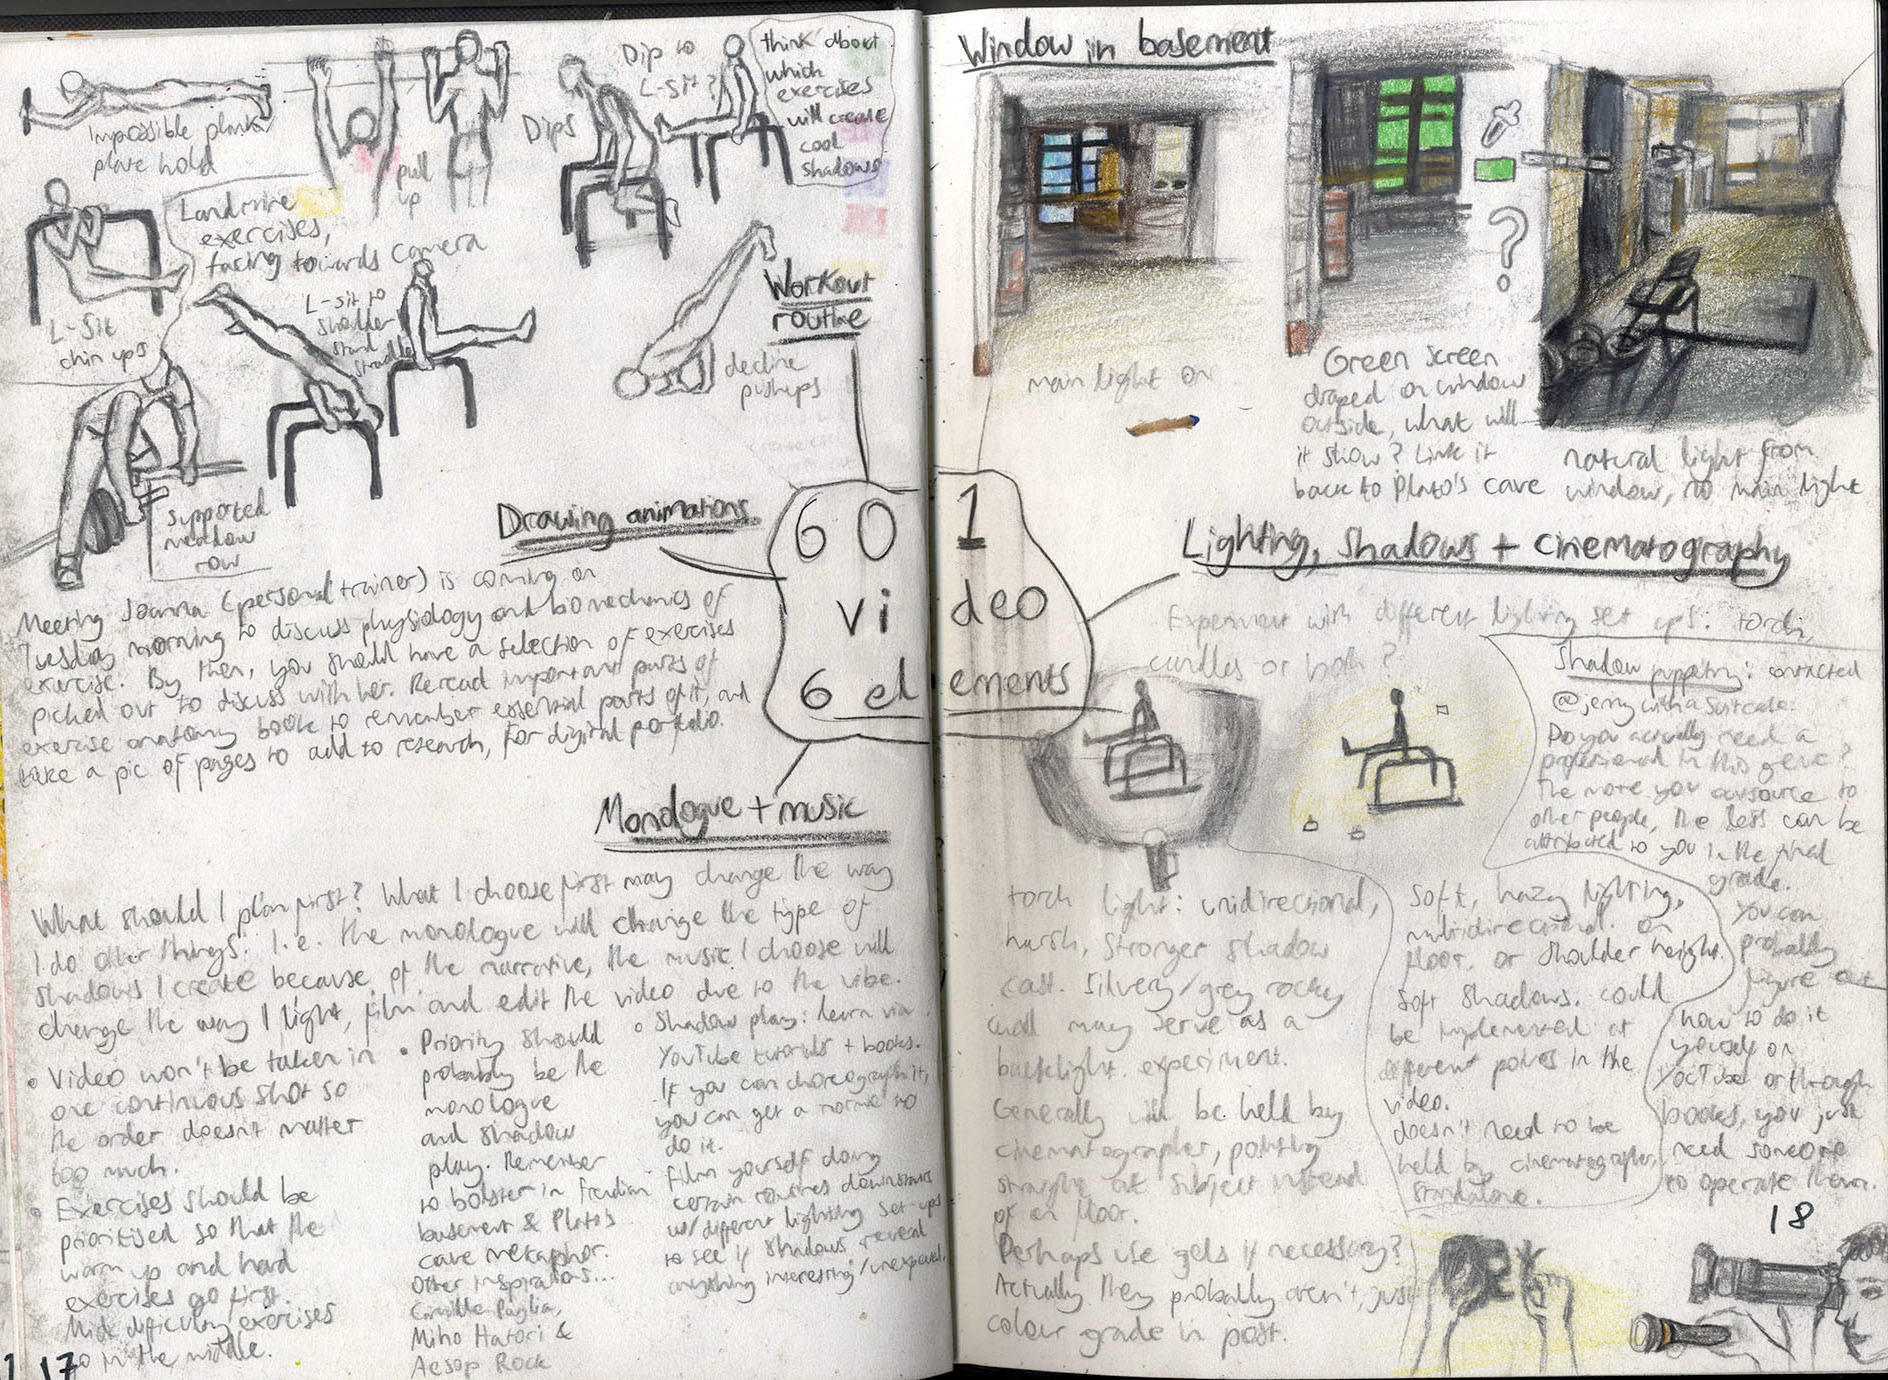 Impossible plank
plave hold
pull
up
Dips
Dip to
L-sit?
think about
which
exercises
will create
cool
shadows
Landmine
exercises,
facing towards camera
L-sit
chin ups
L-sit to
shoulder
stand
straddle
decline
pushups
Workout
routine
supported
meadow
row
Drawing animations
Meeting Joanna (personal trainer) is coming on
Tuesday morning to discuss physiology and biomechanics of
exercise. By then, you should have a selection of exercises
picked out to discuss with her. Reread important parts of
exercise anatomy book to remember essential parts of it, and
take a pic of pages to add to research, for digital portfolio.
60 1
video
6 elements
Monologue + music
What should I plan first? What I choose first may change the way
I do other things. I.e. the monologue will change the type of
shadows I create because of the narrative, the music I choose will
change the way I light, film and edit the video due to the vibe.
• Video won't be taken in
one continuous shot so
the order doesn't matter
too much.
• Exercises should be
prioritised so that the
warm up and hard
exercises go first.
Mid difficulty exercises
go in the middle.
• Priority should
probably be the
monologue
and shadow
play. Remember
to bolster in Freudian
basement & Plato's
cave metaphor.
Other inspirations...
Camille Paglia,
Miho Hatori &
Aesop Rock
• Shadow play: learn via
YouTube tutorials + books.
If you can choreograph it,
you can get a normie to
do it.
Film yourself doing
certain routines downstairs
w/ different lighting set-ups
to see if shadows reveal
anything interesting/unexpected.
17
Window in basement
main light on
Green screen
draped on window
outside, what will
it show? Link it
back to Plato's cave
?
natural light from
window, no main light
Lighting, shadows + cinematography
Experiment with different lighting set ups: torch,
candles or both?
Shadow puppetry: contacted
@jerrywithasuitcase.
Do you actually need a
professional in this genre?
The more you outsource to
other people, the less can be
attributed to you in the final
grade.
You can
probably
figure out
how to do it
yourself on
YouTube or through
books, you just
need someone
to operate them.
torch light: unidirectional,
harsh, stronger shadow
cast. Silvery/grey rocky
wall may serve as a
backlight. experiment.
Generally will be held by
cinematographer, pointing
straight at subject instead
of on floor.
Perhaps use gels if necessary?
Actually they probably aren't, just
colour grade in post.
Soft, hazy lighting,
multidirectional. on
floor, or shoulder height.
Soft shadows. could
be implemented at
different points in the
video.
doesn't need to be
held by cinematographer,
standalone.
18